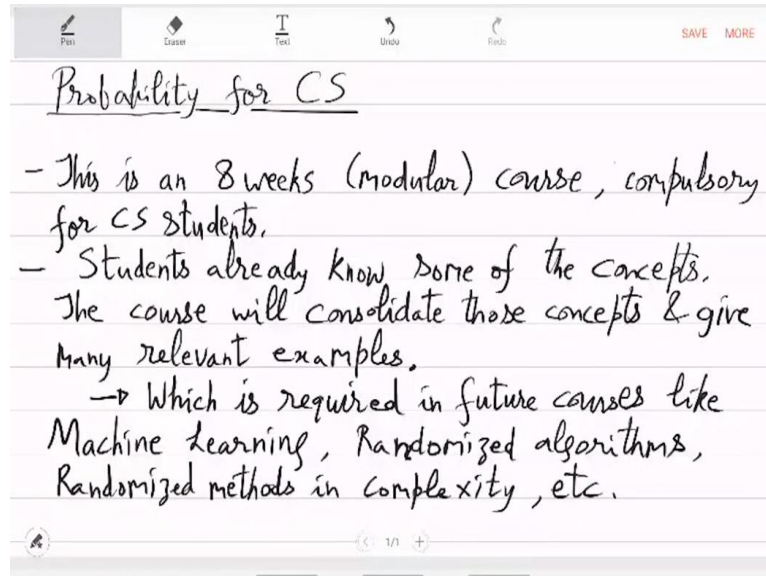 Pen Eraser Text Undo Redo SAVE MORE
Probability for CS
- This is an 8 weeks (modular) course, compulsory
for CS students.
- Students already know some of the concepts.
The course will consolidate those concepts & give
many relevant examples.
→ Which is required in future courses like
Machine Learning, Randomized algorithms,
Randomized methods in complexity, etc.
1/1